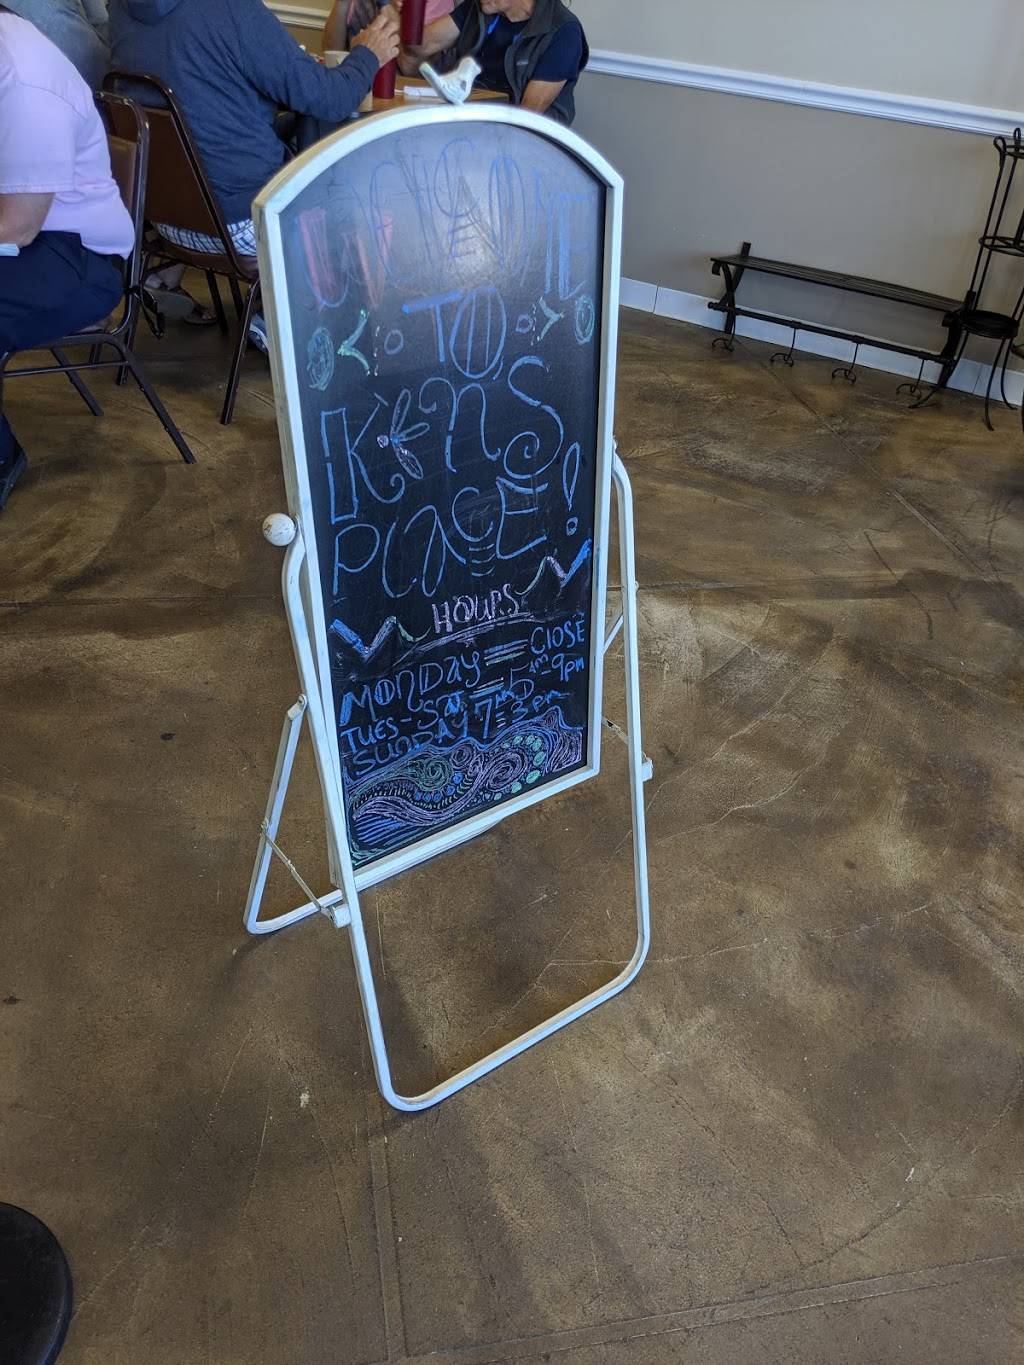 WELCOME
TO
KENS
PLACE!
HOURS
MONDAY = CLOSE
TUES - SAT = 5am 9pm
SUNDAY 7am = 3pm